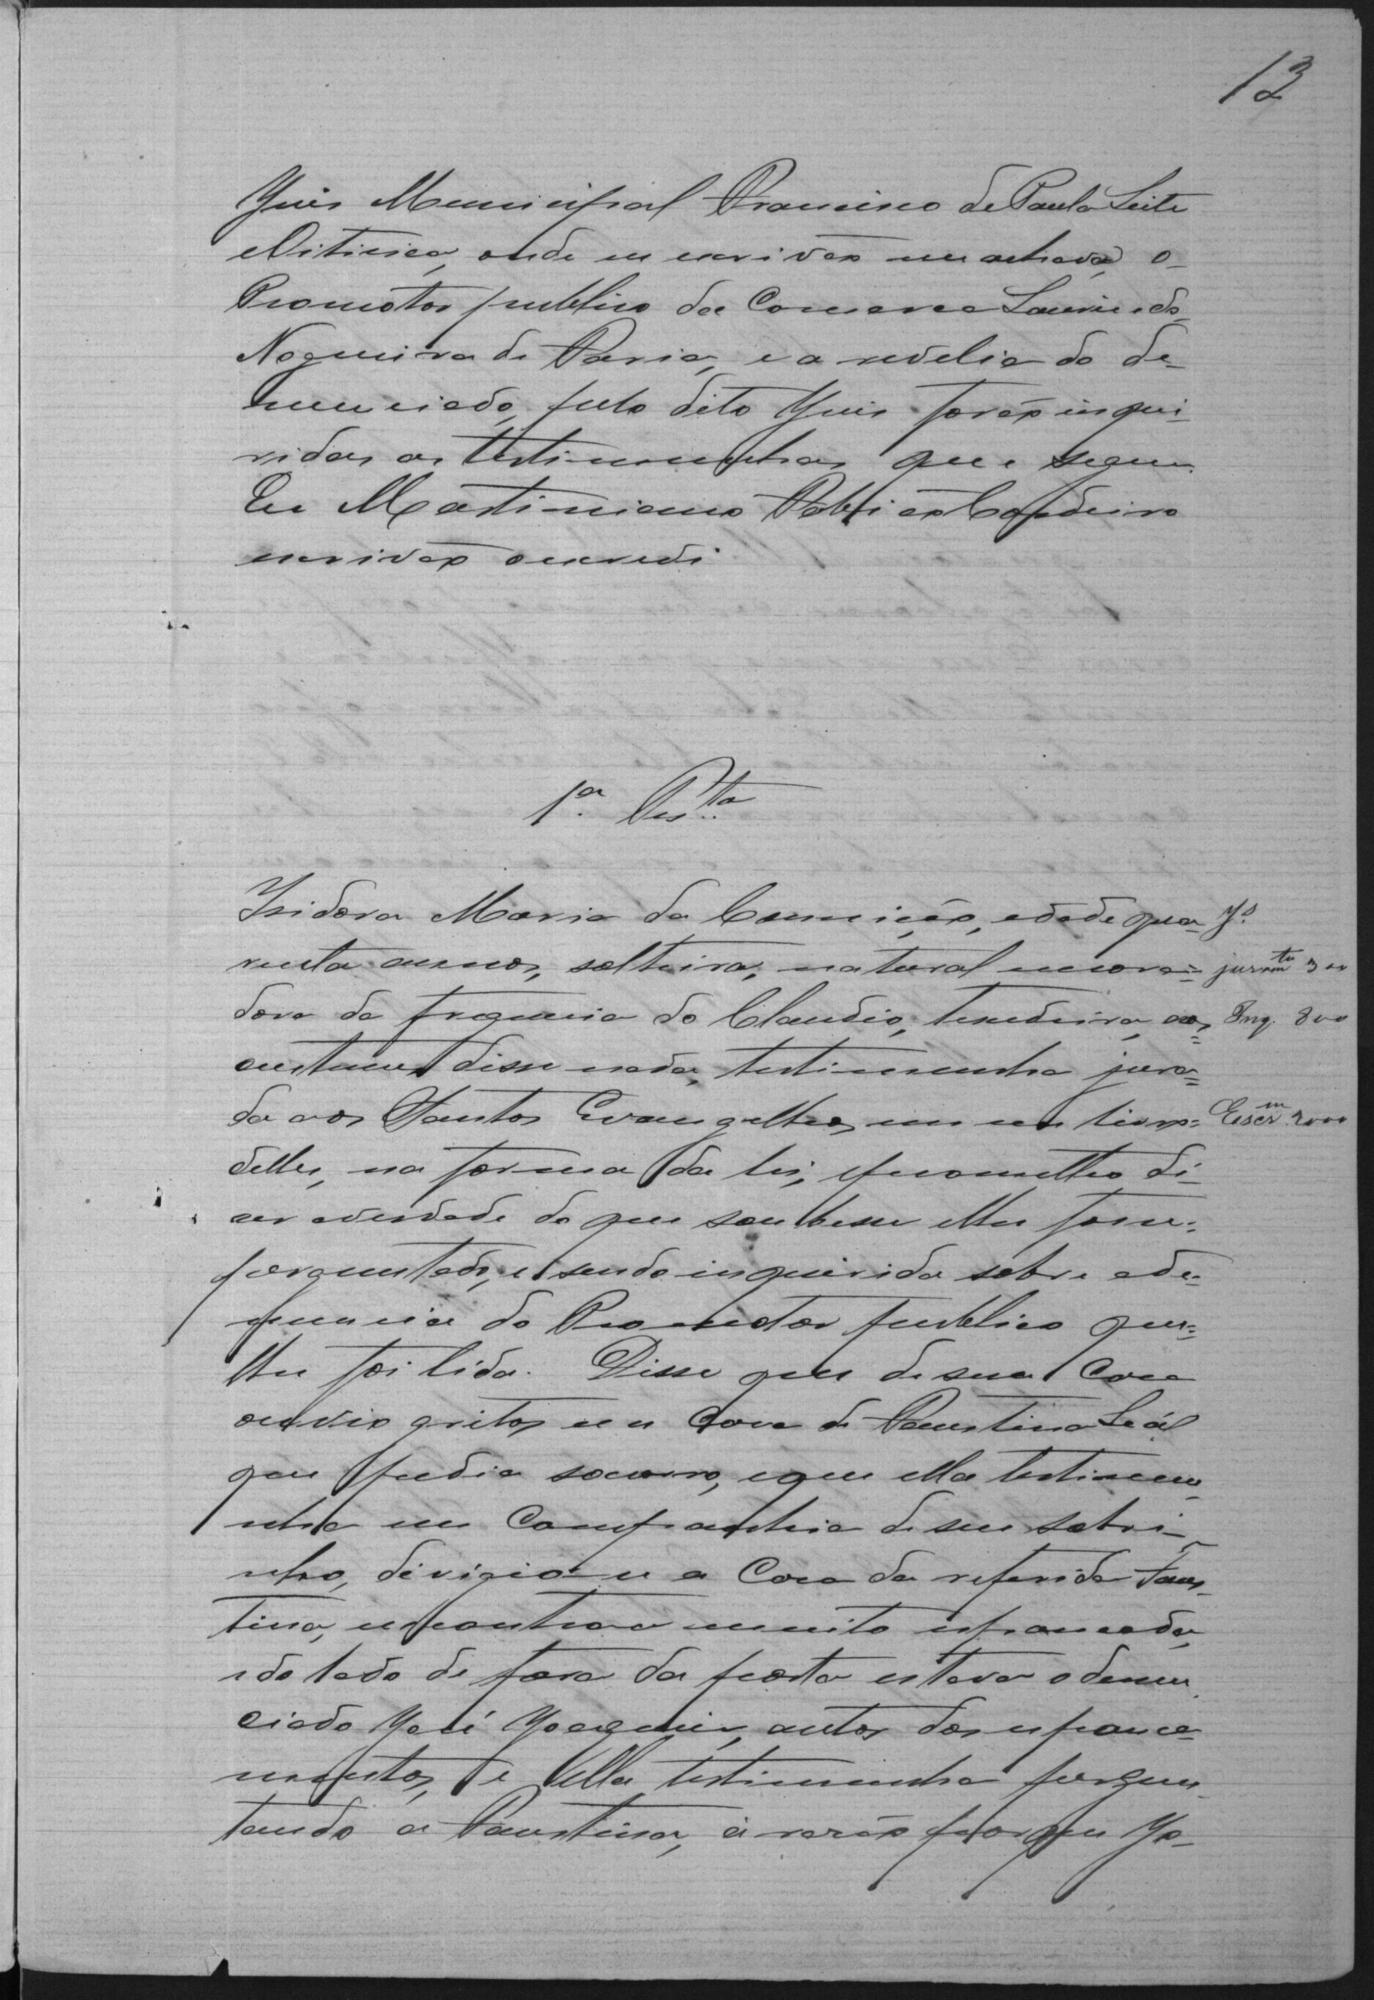 13
Juis Municipal Francisco de Paula Leite
onde eu escrivão me achava, o
Promotor publico da Comarca Laurindo
Nogueira de Faria, e a revelia do de-
nunciado, pelo dito Juis forão inqui-
ridas as testimunhas que se seguem.
Eu Martiniano Fabrião Cordeiro
escrivão o escrevi
1.ª Tes.ta
Isidora Maria da Conceição, edade qua-
renta annos, solteira, natural e mora-
dora da freguesia do Claudio, tecedeira, aos
custumes disse nada, testimunha jura-
da aos Santos Evangelhos, em um livro
delles, na forma da lei, e prometteo di-
zer a verdade do que soubesse e lhe fosse
perguntado, e sendo inquirida sobre a de-
nuncia do Promotor publico que
lhe foi lida. Disse que de sua casa
ouvio gritos em casa de Faustina Leál
que pedia socorro, e que ella testimu-
nha em companhia de seu sobri-
nho, dirigio-se a casa da referida Faus-
tina, e encontrou muito espancada,
e do lado de fora da porta estava o denun-
ciado José Joaquim, autor dos espanca-
mentos, e ella testimunha pergun-
tando a Faustina, a rasão por que Jo-
J.s
juram.to 300
Inq. 800
Escr.m 2000